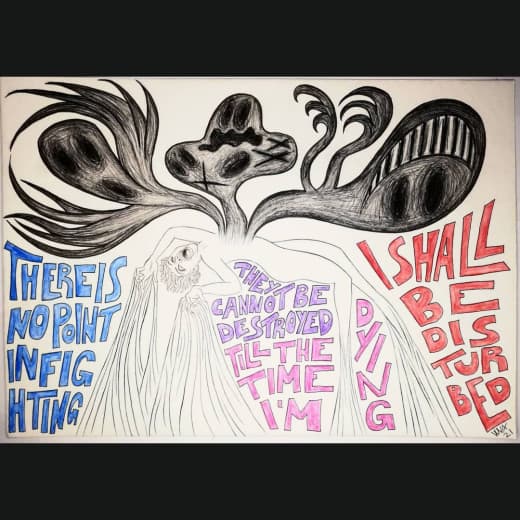 THERE IS
NO POINT
IN FIG
HTING
THEY
CANNOT BE
DESTROYED
TILL THE
TIME
I'M
DYING
I SHALL
BE
DIS
TUR
BED